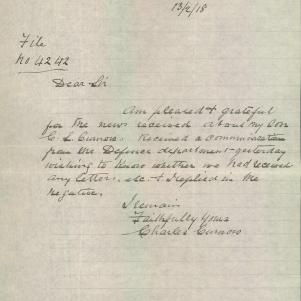 13/2/18
File
No 4242
Dear Sir
Am pleased & grateful
for the news received about my son
C. L. Curnow. Received a communication
from the Defence department yesterday
wishing to know whether we had received
any letters, etc. & I replied in the
negative.
I remain
Faithfully Yours
Charles Curnow